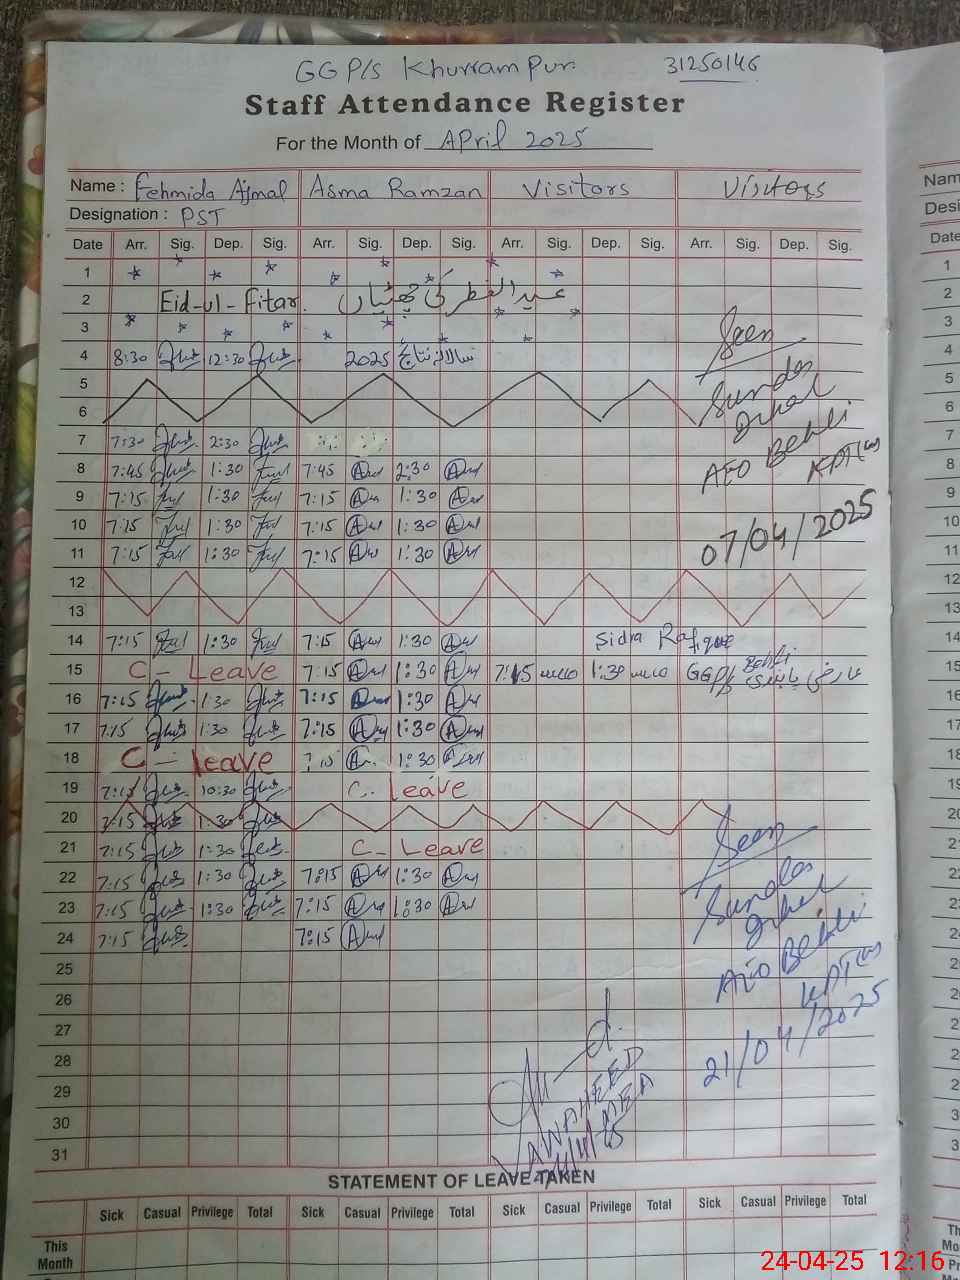 GGP/s Khurrampur 31250146
Staff Attendance Register
For the Month of April 2025
Name : Fehmida Ajmal Asma Ramzan Visitors Visitors
Designation : PST
Date Arr. Sig. Dep. Sig. Arr. Sig. Dep. Sig. Arr. Sig. Dep. Sig. Arr. Sig. Dep. Sig.
1
2 Eid-ul-Fitar عید الفطر کی چھٹیاں
3
4 8:30 12:30 2025 سالانہ نتائج
5
6
7 7:30 2:30
8 7:45 1:30 7:45 2:30
9 7:15 1:30 7:15 1:30
10 7:15 1:30 7:15 1:30
11 7:15 1:30 7:15 1:30
12
13
14 7:15 1:30 7:15 1:30 Sidra Rafique
15 C - Leave 7:15 1:30 7:15 1:30 GGP/s Behli عارضی
16 7:15 1:30 7:15 1:30
17 7:15 1:30 7:15 1:30
18 C - Leave 1:30
19 7:15 10:30 C. Leave
20 7:15 1:30
21 7:15 1:30 C - Leave
22 7:15 1:30 7:15 1:30
23 7:15 1:30 7:15 1:30
24 7:15 7:15
25
26
27
28
29
30
31
Seen
Sundas
AEO Behli
07/04/2025
Seen
Sundas
AEO Behli
21/04/2025
WAHEED
MEA
STATEMENT OF LEAVE TAKEN
Sick Casual Privilege Total Sick Casual Privilege Total Sick Casual Privilege Total Sick Casual Privilege Total
This
Month
24-04-25 12:16